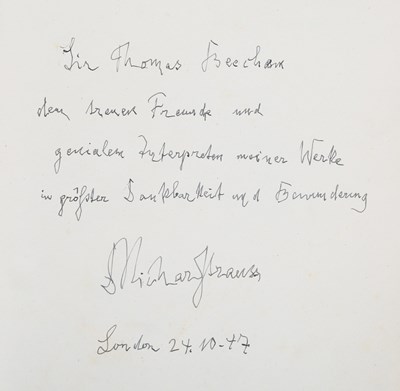 Sir Thomas Beecham
dem treuen Freunde und
genialen Interpreten meiner Werke
in größter Dankbarkeit und Bewunderung
Dr Richard Strauss
London 24.10.47